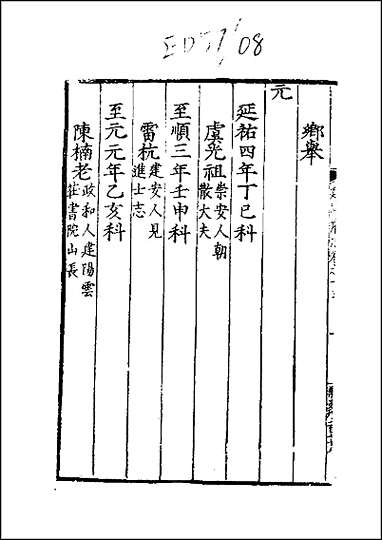 鄉舉
元
延祐四年丁巳科
虞光祖崇安人朝散大夫
至順三年壬申科
雷杭建安人見進士志
至元元年乙亥科
陳楠老政和人建陽雲莊書院山長